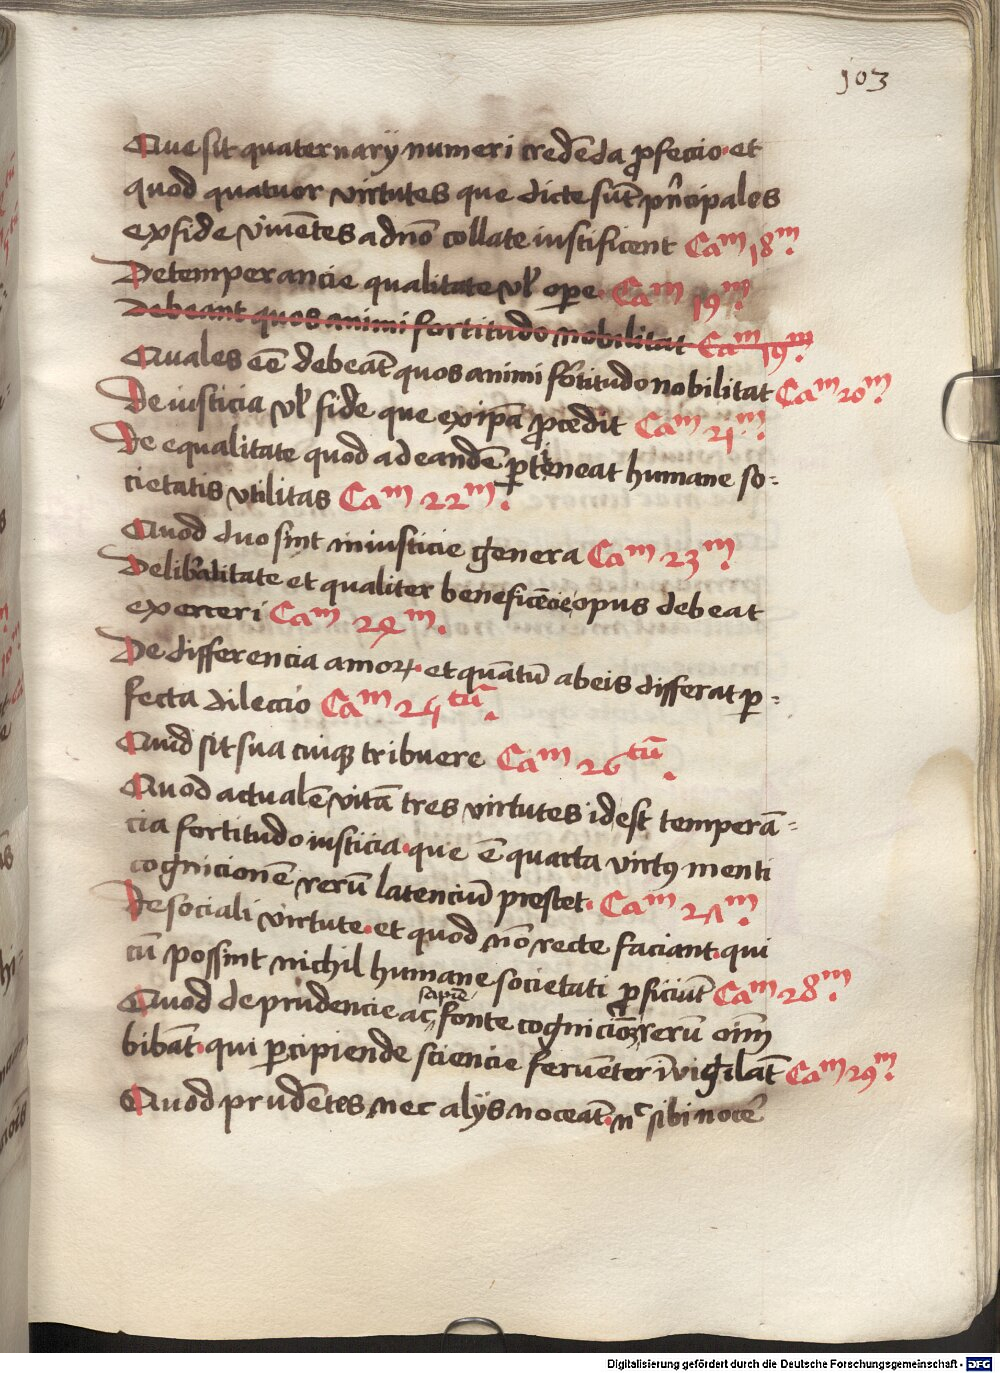 103
Que sit quaternarij numeri credēda ꝓfeccio et
quod quatuor virtutes que dicte sūt pñcipales
ex fide viuētes a dn̄o collate iustificent Caᵐ 18ᵐ
De temperancie qualitate vł oꝑe Caᵐ 19ᵐ
Debeant quos animi fortitudo nobilitat Caᵐ 19ᵐ
Quales eē debeāt quos animi fortitudo nobilitat Caᵐ 20ᵐ
De iusticia vł fide que ex ip̄a ꝓcedit Caᵐ 21ᵐ
De equalitate quod ad eandē ꝑtineat humane so-
cietatis vtilitas Caᵐ 22ᵐ
Quod duo sint iniusticie genera Caᵐ 23ᵐ
De liƀalitate et qualiter beneficēcie opus debeat
exerceri Caᵐ 24ᵐ
De differencia amoꝝ et quātū ab eis differat ꝑ-
fecta dileccio Caᵐ 25ᵗū
Quid sit sua cuiqꝫ tribuere Caᵐ 26ᵗū
Quod actualē vitā tres virtutes id est temperā-
cia fortitudo iusticia que ē quarta virtꝰ menti
cognicionē rerū latenciū prestet Caᵐ 27ᵐ
De sociali virtute et quod nō recte faciant qui
cū possint nichil humane societati ꝓficiūt Caᵐ 28ᵐ
Quod de prudencie ac sapiē fonte cognicionē rerū oīm
bibāt qui ꝑcipiende sciencie feruēter īvigilāt Caᵐ 29ᵐ
Quod prudētes nec alijs noceāt nᶜ sibi nocē
Digitalisierung gefördert durch die Deutsche Forschungsgemeinschaft - DFG